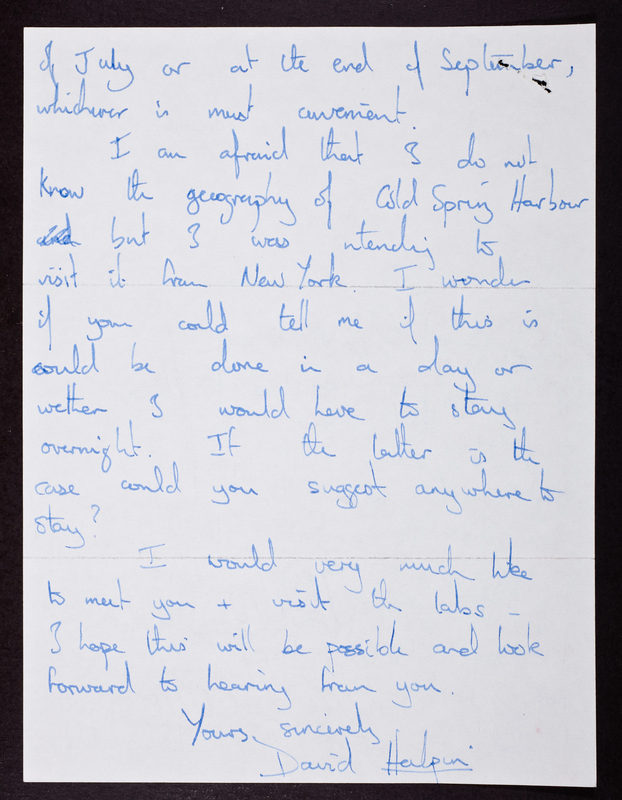 of July or at the end of September,
whichever is most convenient.
I am afraid that I do not
know the geography of Cold Spring Harbour
but I was intending to
visit it from New York. I wonder
if you could tell me if this is
could be done in a day or
wether I would have to stay
overnight. If the latter is the
case could you suggest anywhere to
stay?
I would very much like
to meet you + visit the labs –
I hope this will be possible and look
forward to hearing from you.
Yours sincerely
David Halpin